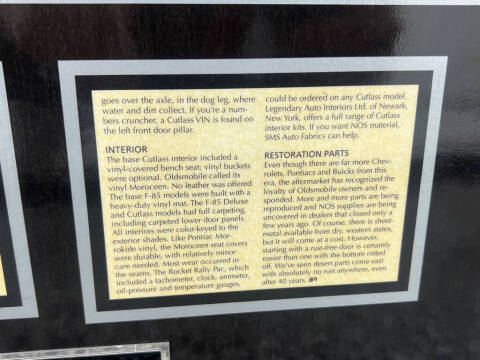 goes over the axle, in the dog leg, where
water and dirt collect. If you're a num-
bers cruncher, a Cutlass VIN is found on
the left front door pillar.
INTERIOR
The base Cutlass interior included a
vinyl-covered bench seat; vinyl buckets
were optional. Oldsmobile called its
vinyl Moroceen. No leather was offered.
The base F-85 models were built with a
heavy-duty vinyl mat. The F-85 Deluxe
and Cutlass models had full carpeting,
including carpeted lower door panels.
All interiors were color-keyed to the
exterior shades. Like Pontiac Mor-
rokide vinyl, the Moroceen seat covers
were durable, with relatively minor
care needed. Most wear occurred in
the seams. The Rocket Rally Pac, which
included a tachometer, clock, ammeter,
oil-pressure and temperature gauges,
could be ordered on any Cutlass model.
Legendary Auto Interiors Ltd. of Newark,
New York, offers a full range of Cutlass
interior kits. If you want NOS material,
SMS Auto Fabrics can help.
RESTORATION PARTS
Even though there are far more Chev-
rolets, Pontiacs and Buicks from this
era, the aftermarket has recognized the
loyalty of Oldsmobile owners and re-
sponded. More and more parts are being
reproduced and NOS supplies are being
uncovered in dealers that closed only a
few years ago. Of course, there is sheet-
metal available from dry, western states,
but it will come at a cost. However,
starting with a rust-free door is certainly
easier than one with the bottom rotted
off. We've seen desert parts come east
with absolutely no rust anywhere, even
after 40 years.